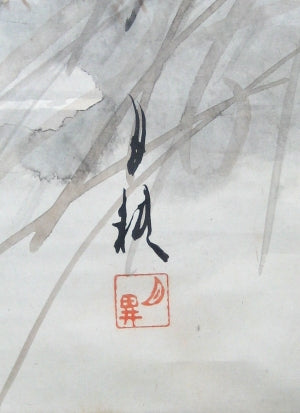 月耕
月畊